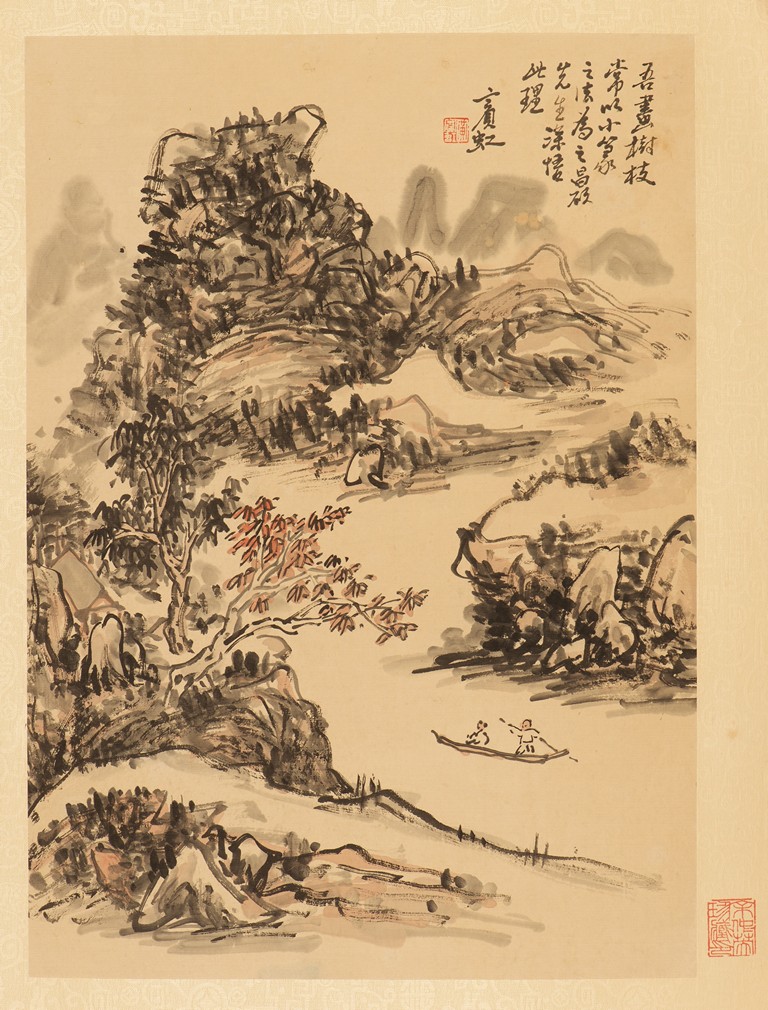 吾畫樹枝
常以小篆
之法為之昌碩
先生深悟
此理
賓虹